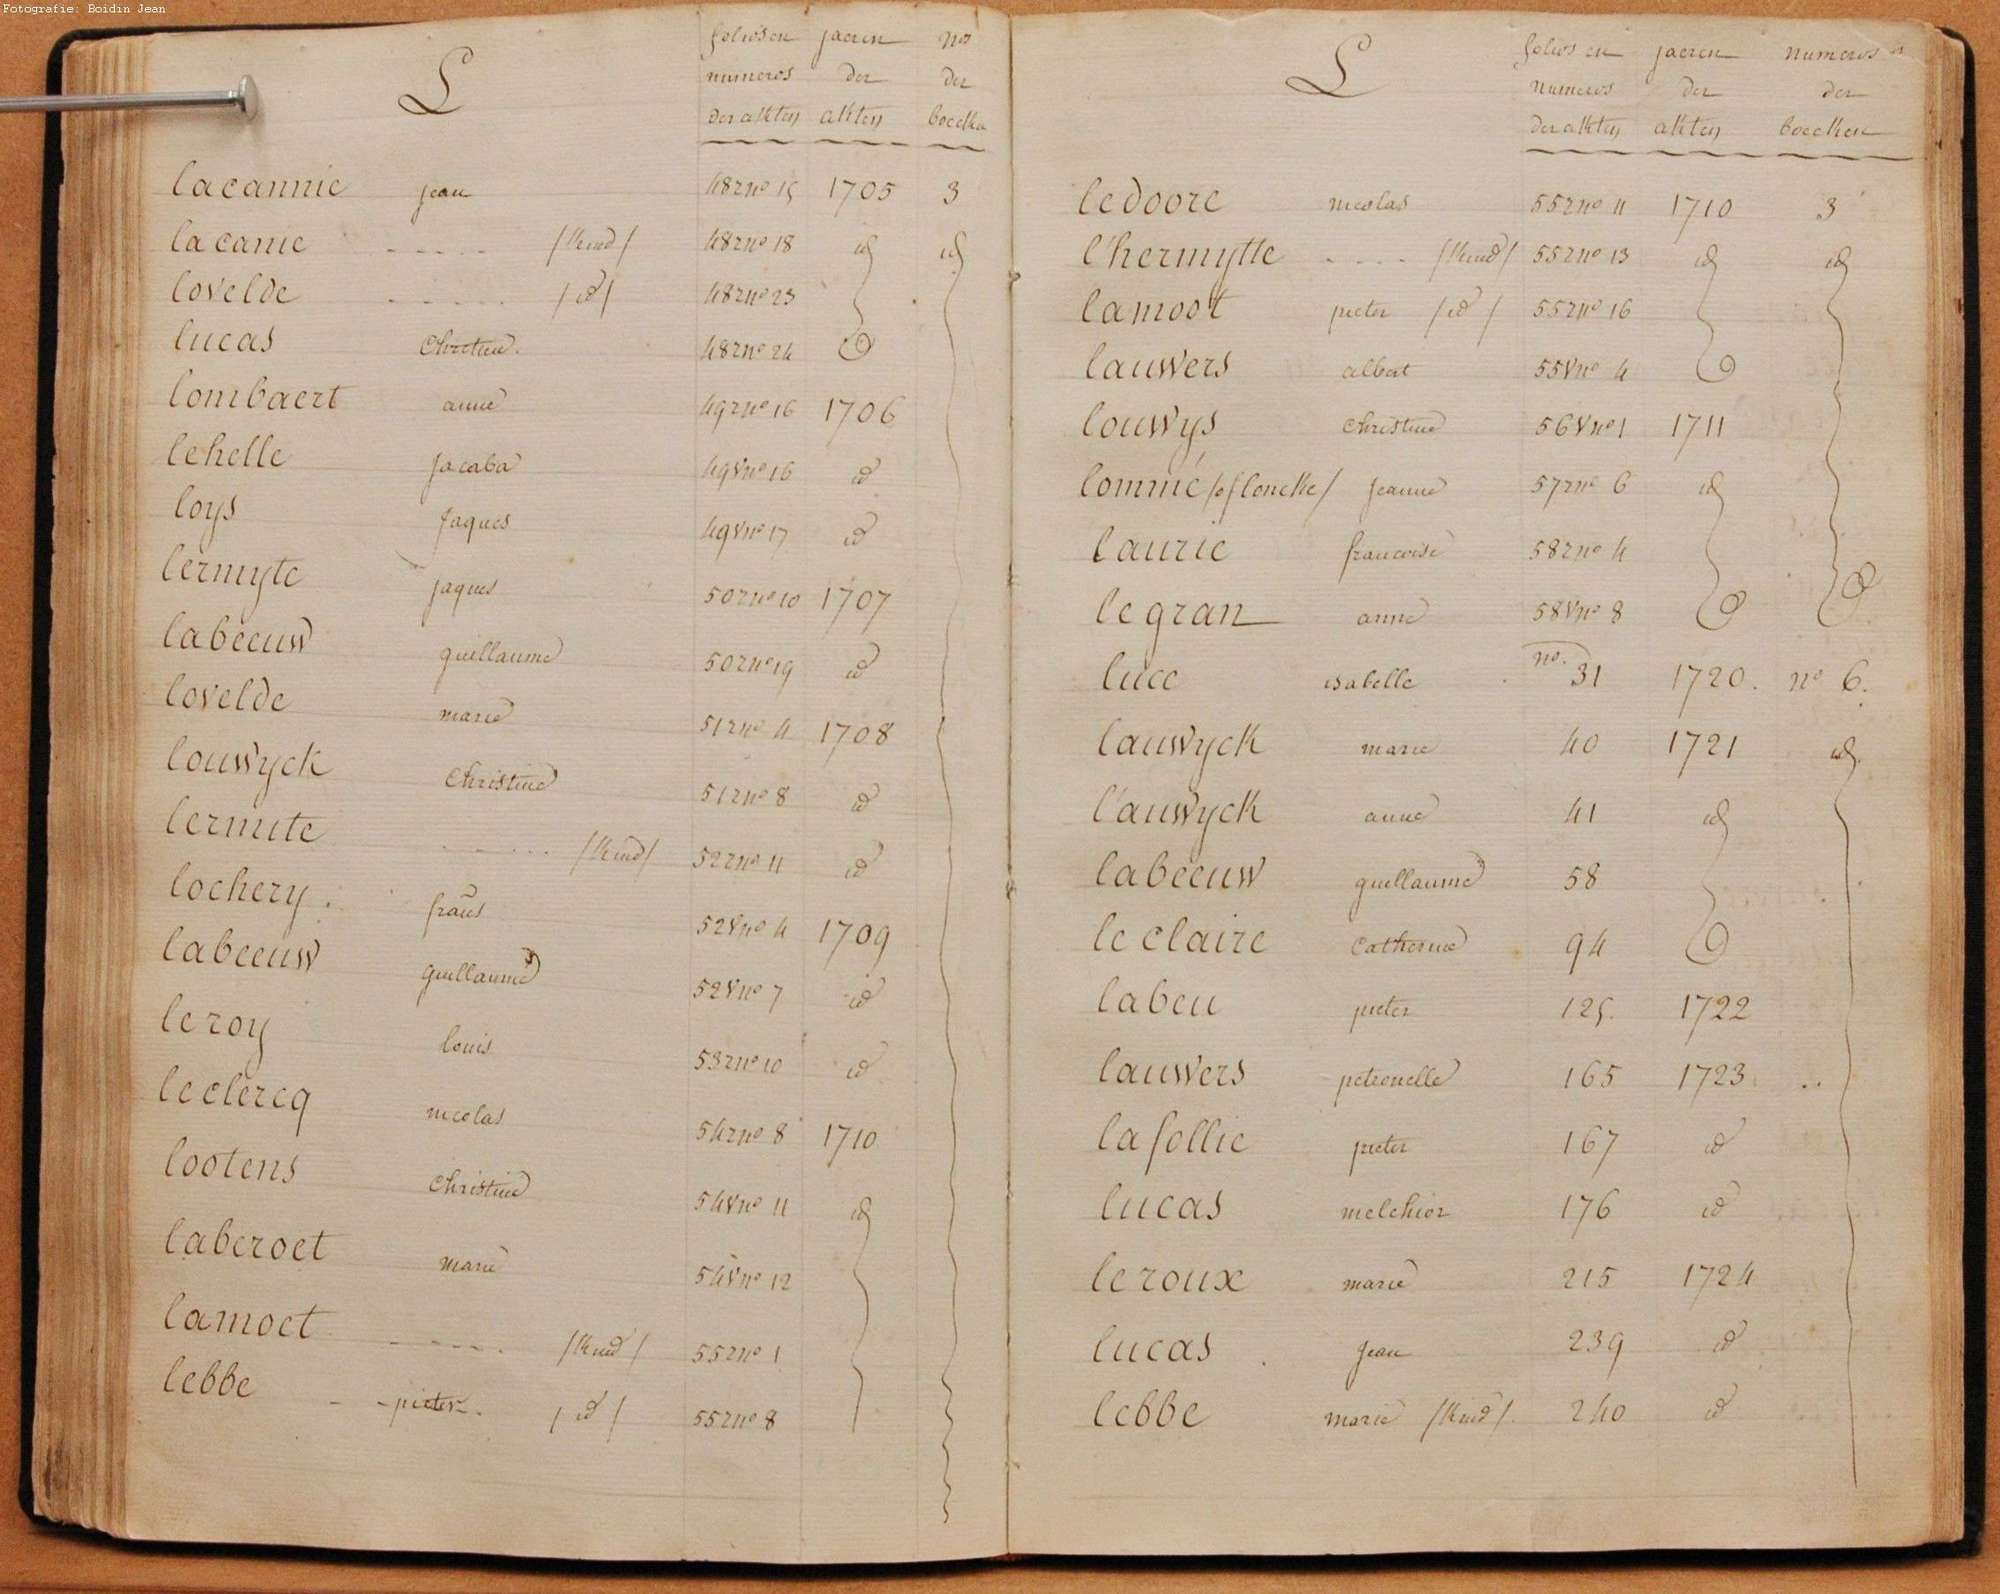 Fotografie: Boidin Jean
L
folios en jaeren nos
numeros der der
der akten akten boecken
lacannie jean 48r no 15 1705 3
lacanie - - - - - /kind/ 48r no 18 id id
lovelde - - - - - /id/ 48r no 23
lucas Chretien. 48r no 24
lombaert anne 49r no 16 1706
lehelle jacaba 49v no 16 id
loys jaques 49v no 17 id
lermyte jaques 50r no 10 1707
labeeuw guillaume 50r no 19 id
lovelde marie 51r no 4 1708
louwyck Christine 51r no 8 id
lermite - - - - - - /kind/ 52r no 11 id
lochery. frans 52v no 4 1709
labeeuw guillaume 52v no 7 id
leroy louis 53r no 10 id
leclercq nicolas 54r no 8 1710
lootens Christine 54v no 11 id
laberoet marie 54v no 12
lamoet - - - - - /kind/ 55r no 1
lebbe - - pieter - . / id / 55r no 8
L
folios en jaeren numeros
numeros der der
der akten akten boecken
ledoore nicolas 55r no 11 1710 3
l'hermytte - - - - /kind/ 55r no 13 id id
lamoot pieter /id/ 55r no 16
lauwers albert 55v no 4
louwys Christine 56v no 1 1711
lommé /of loncke/ jeanne 57r no 6 id
laurie francoise 58r no 4
legran anne 58v no 8
luce isabelle no. 31 1720. no 6.
lauwyck marie 40 1721 id.
l'auwyck anne 41 id
labeeuw guillaume 58
le claire Catherine 94
labeu pieter 125. 1722
lauwers petronelle 165 1723
lafollie pieter 167 id
lucas melchior 176 id
leroux marie 215 1724
lucas . jean 239 id
lebbe marie /kind/. 240 id